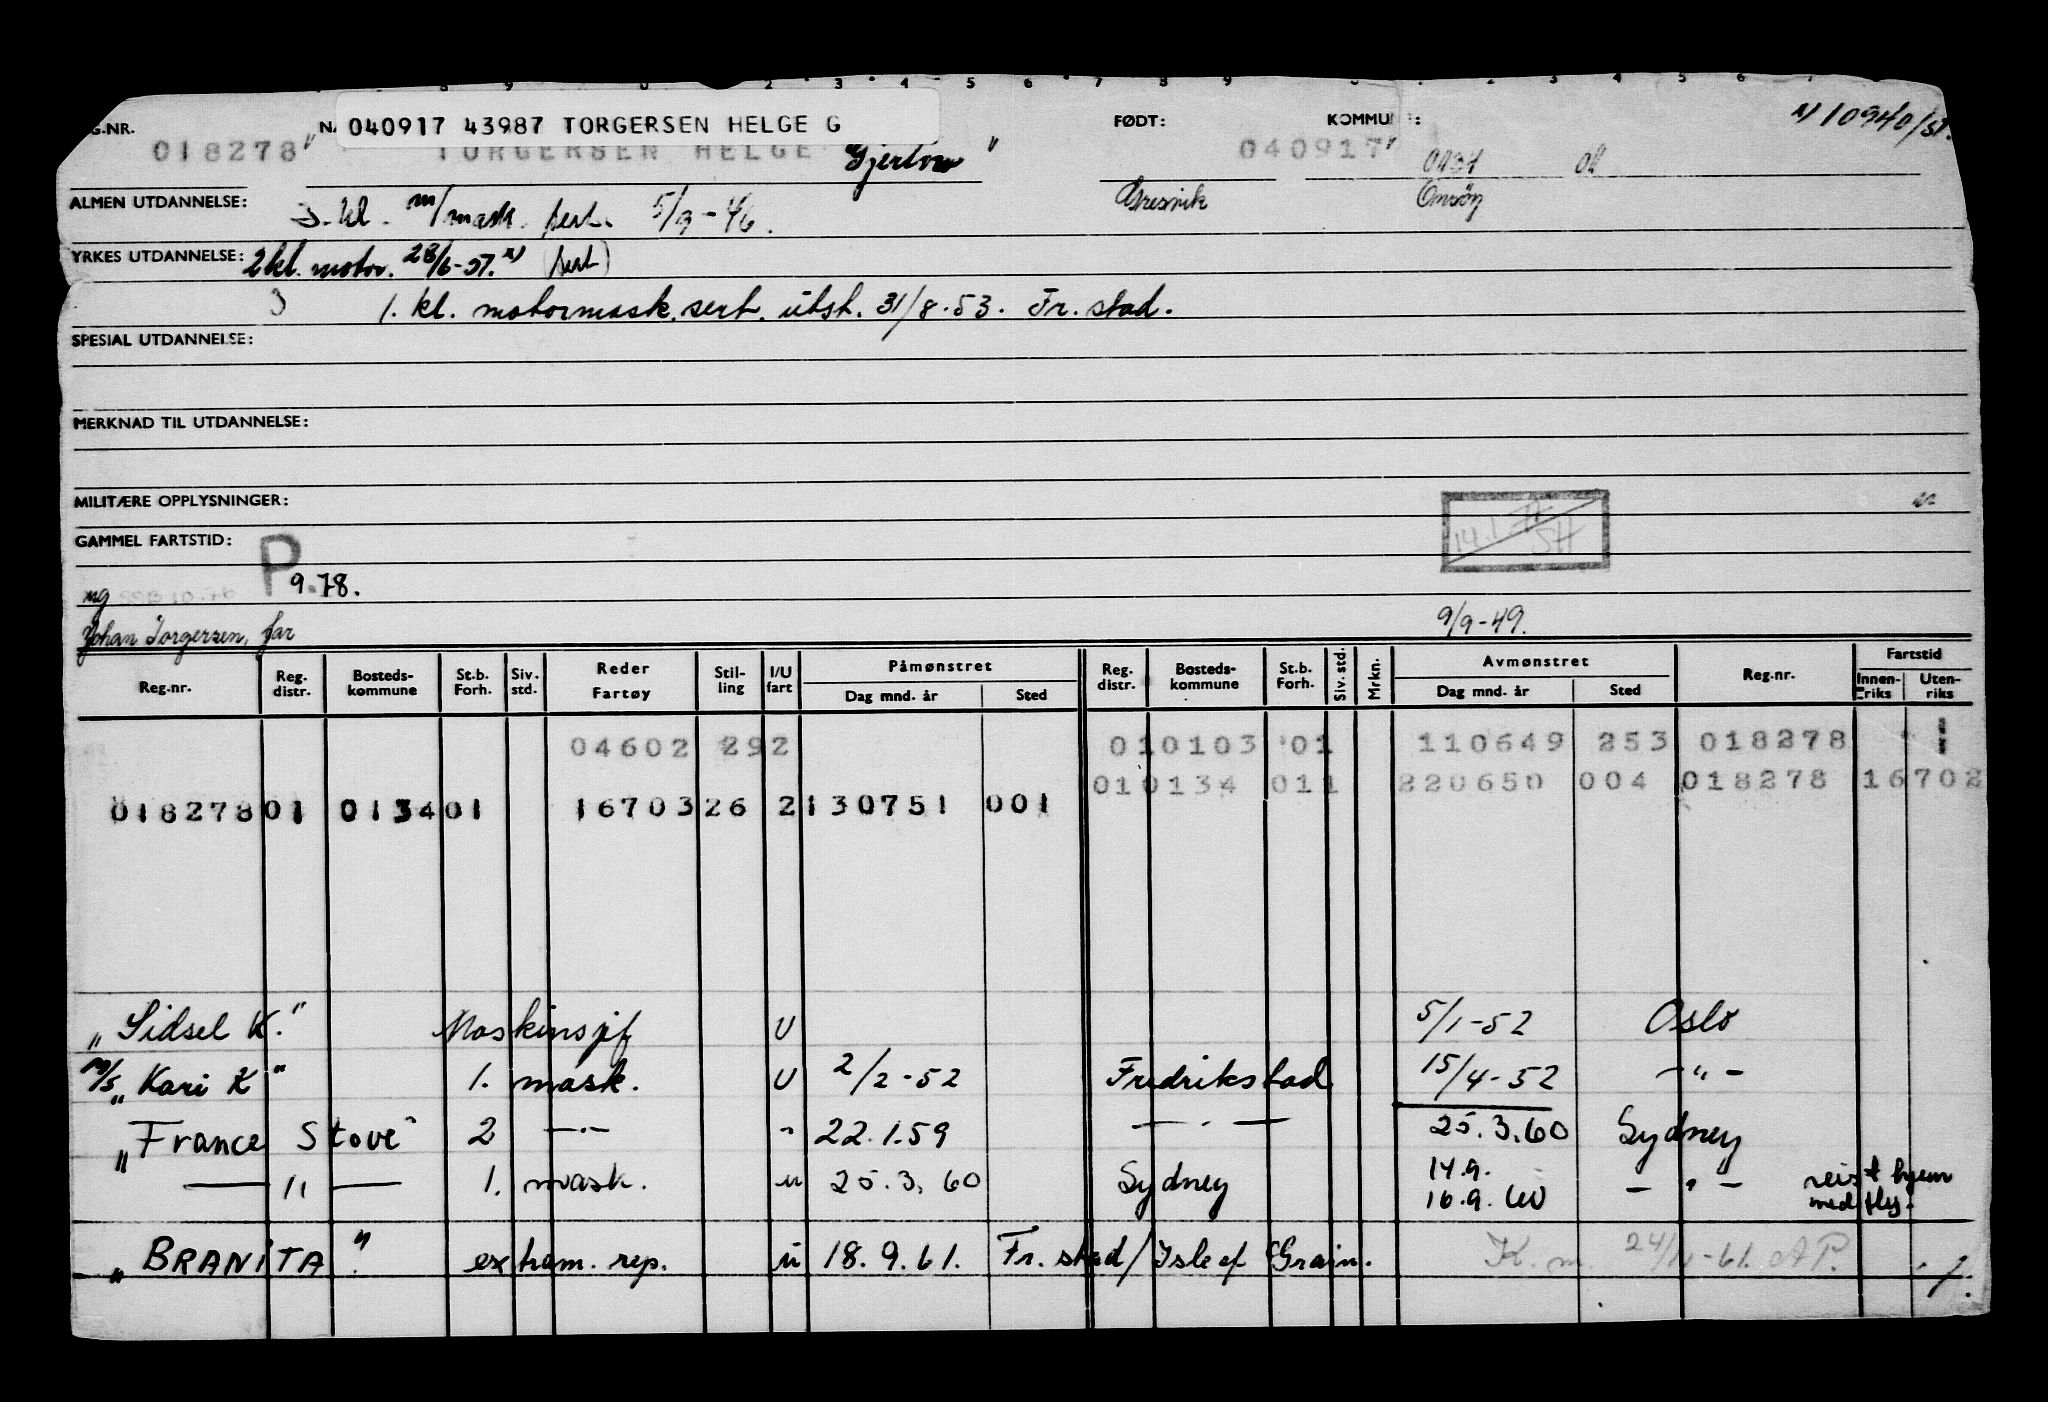 REG.NR. NA 040917 43987 TORGERSEN HELGE G FØDT: KOMMUNE: x) 10940/51.
018278" TORGERSEN HELGE Gjertow " 040917"
ALMEN UTDANNELSE: 3. kl. m/mask. sert. 5/9-46. Gresvik Onsöy
YRKES UTDANNELSE: 2 kl. motor. 28/6-51. x) (sert)
1. kl. motormask. sert. utst. 31/8-53. Fr. stad.
SPESIAL UTDANNELSE:
MERKNAD TIL UTDANNELSE:
MILITÆRE OPPLYSNINGER:
GAMMEL FARTSTID: P
ng 9.78.
Johan Torgersen, far 9/9-49.
Reg.nr. Reg. distr. Bosteds-kommune St.b. Forh. Siv. std. Reder Fartøy Stil-ling I/U fart Påmønstret Dag mnd. år Sted Reg. distr. Bosteds-kommune St.b. Forh. Siv. std. Mrkn. Avmønstret Dag mnd. år Sted Reg.nr. Fartstid Innen-riks Uten-riks
04602 292 010103 01 110649 253 018278
010134 011 220650 004 018278 16702
018278 01 0134 01 16703 26 2 130751 001
"Sidsel K." Maskinsjef U 5/1-52 Oslo
m/s "Kari K" 1. mask. U 2/2-52 Fredrikstad 15/4-52 -"-
"France Stove" 2 -"- " 22.1.59 -"- 25.3.60 Sydney
-"- 1. mask. u 25.3.60 Sydney 14.9.
16.9.60 -"- reist hjem med fly.
"BRANITA". extram. rep. u 18.9.61. Fr. stad / Isle of Grain. K. m. 24/11-61. AP.